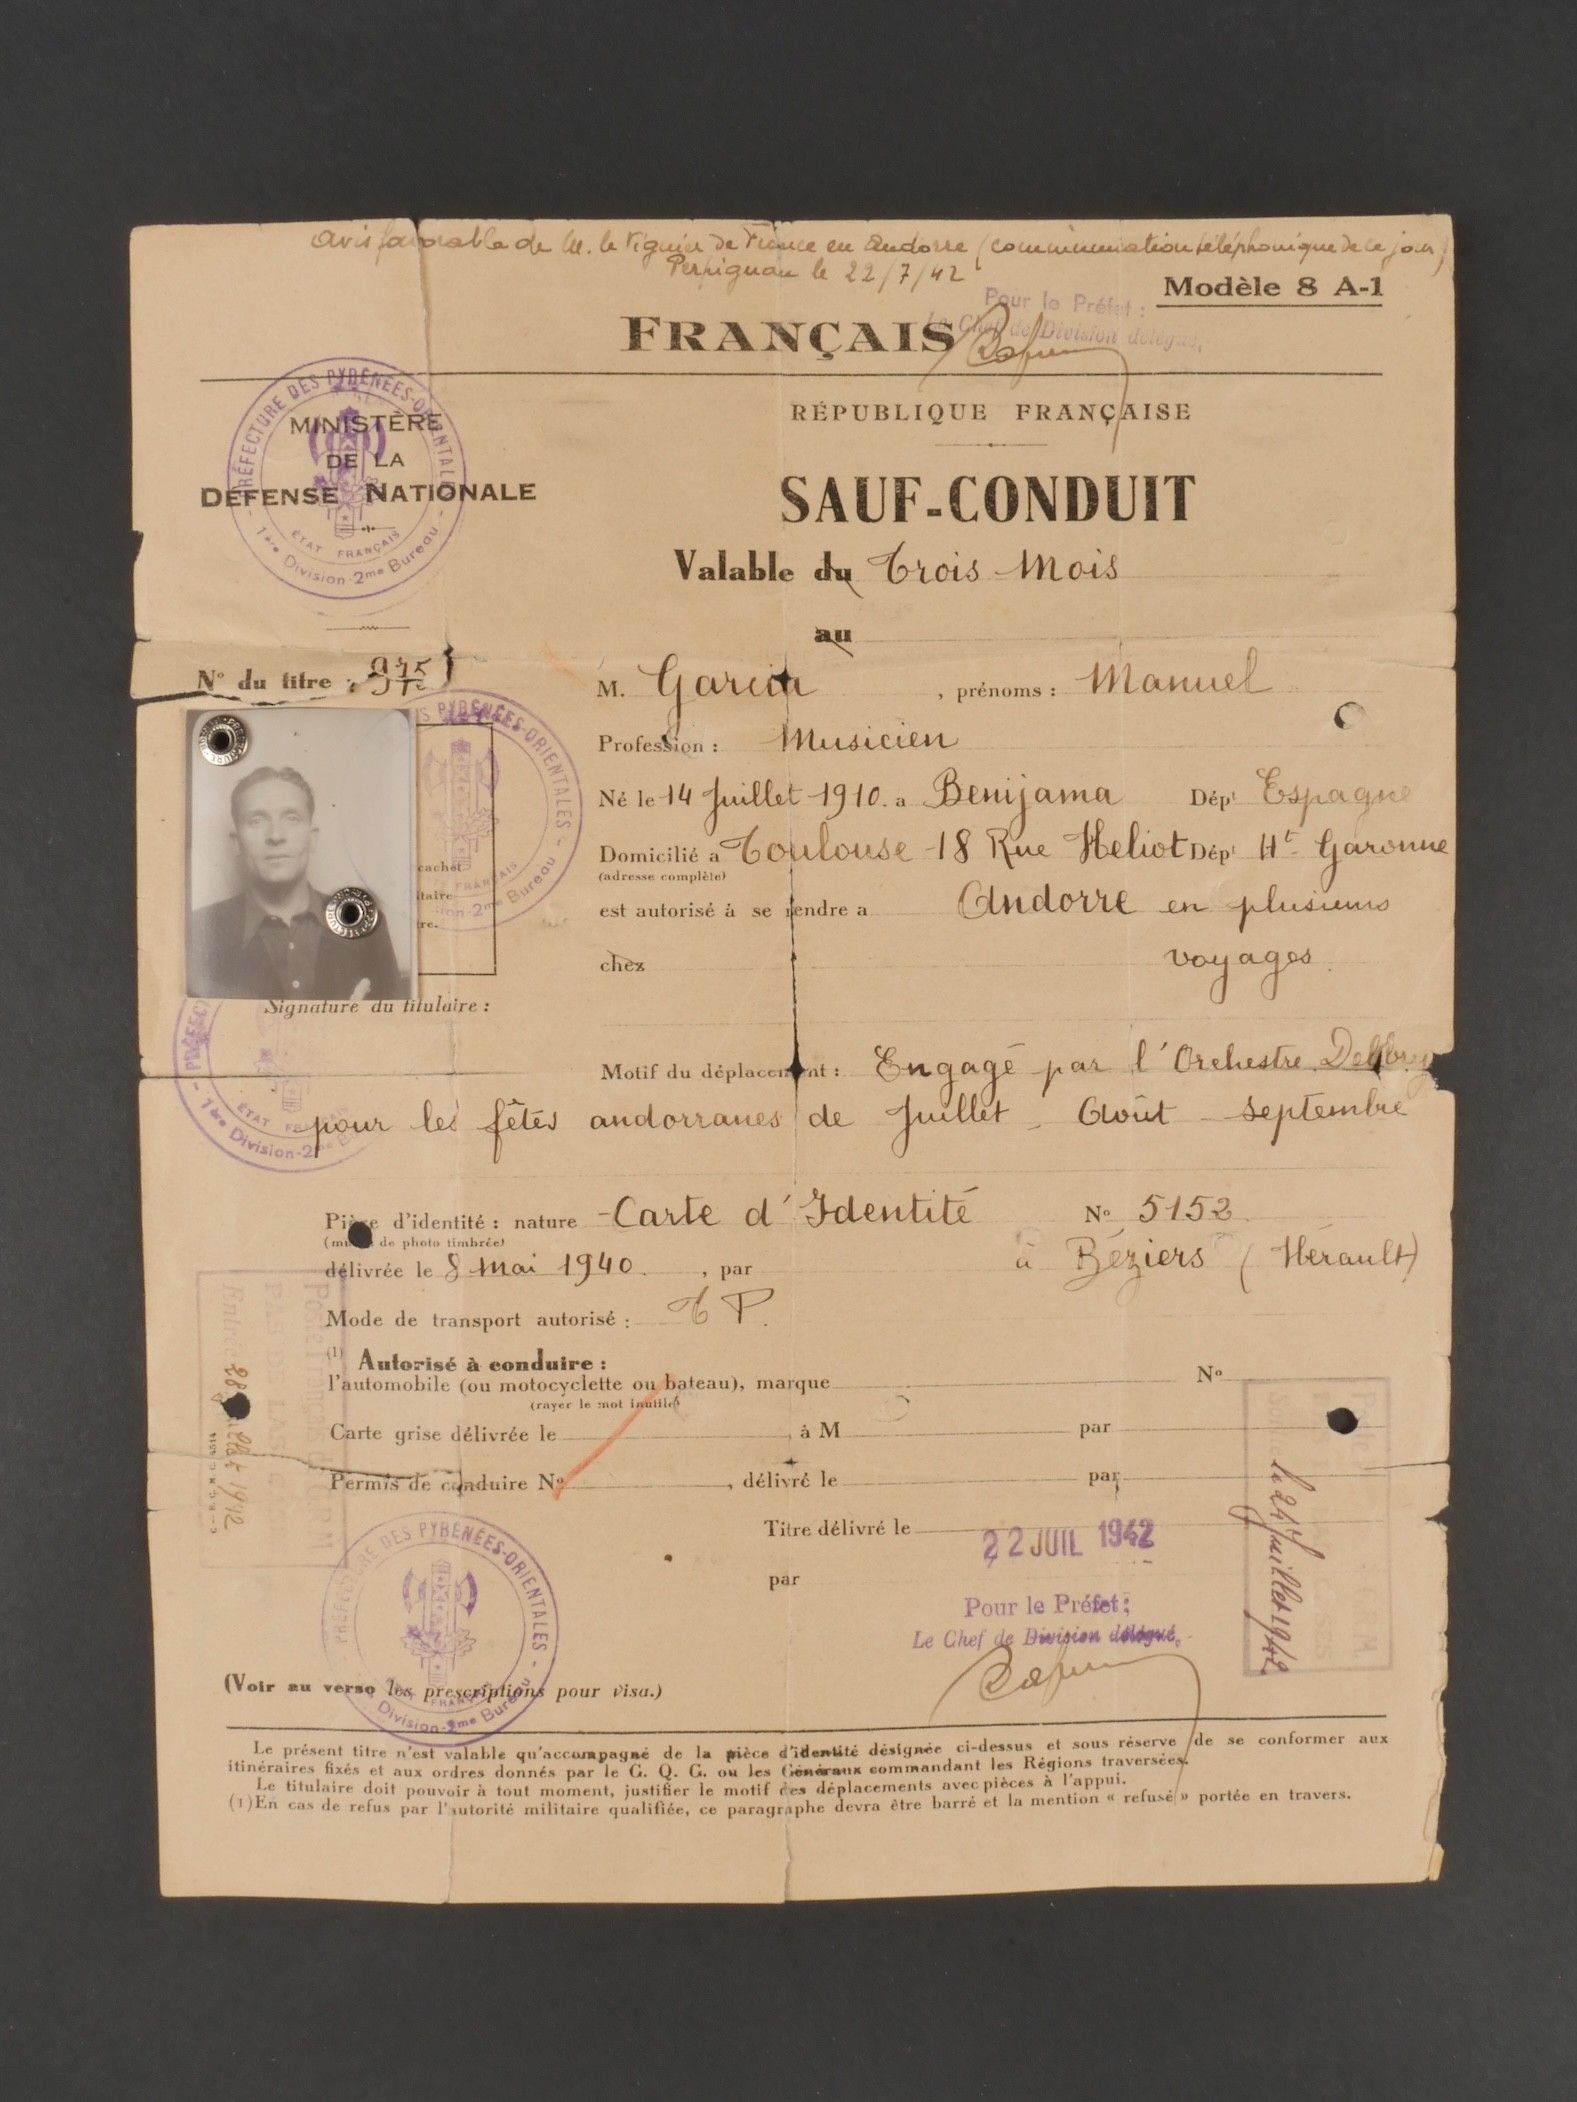 avis favorable de M. le Viguier de France en Andorre (communication téléphonique de ce jour)
Perpignan le 22/7/42
Modèle 8 A-1
Pour le Préfet :
Le Chef de Division délégué,
FRANÇAIS
PRÉFECTURE DES PYRÉNÉES-ORIENTALES
ÉTAT FRANÇAIS
1ère Division-2me Bureau
MINISTÈRE
DE LA
DÉFENSE NATIONALE
RÉPUBLIQUE FRANÇAISE
SAUF-CONDUIT
Valable du Trois Mois
au
No du titre : 975
M. Garcia, prénoms : Manuel
Profession : Musicien
Né le 14 Juillet 1910. a Benijama Dépt Espagne
Domicilié a Toulouse - 18 Rue Heliot Dépt Hte Garonne
(adresse complète)
est autorisé à se rendre a Andorre en plusieurs
chez voyages.
S PYRÉNÉES-ORIENTALES
cachet
itaire
re.
ion-2me Bureau
Signature du titulaire :
ÉTAT
1ère Division-2me
Motif du déplacement : Engagé par l'Orchestre
pour les fêtes andorranes de Juillet - Août - septembre
Pièce d'identité : nature - Carte d'Identité No 5152
de photo timbrée)
délivrée le 8 mai 1940., par à Béziers (Hérault)
Mode de transport autorisé : T P.
(1) Autorisé à conduire :
l'automobile (ou motocyclette ou bateau), marque No
(rayer le mot inutile)
Carte grise délivrée le , à M par
Permis de conduire No , délivré le par
Titre délivré le 22 JUIL 1942
par
Pour le Préfet :
Le Chef de Division délégué,
PRÉFECTURE DES PYRÉNÉES-ORIENTALES
Division-2me Bureau
Entrée
1942
le 24 Juillet 1942
(Voir au verso les prescriptions pour visa.)
Le présent titre n'est valable qu'accompagné de la pièce d'identité désignée ci-dessus et sous réserve de se conformer aux
itinéraires fixés et aux ordres donnés par le G. Q. G. ou les Généraux commandant les Régions traversées.
Le titulaire doit pouvoir à tout moment, justifier le motif des déplacements avec pièces à l'appui.
(1) En cas de refus par l'autorité militaire qualifiée, ce paragraphe devra être barré et la mention « refusé » portée en travers.